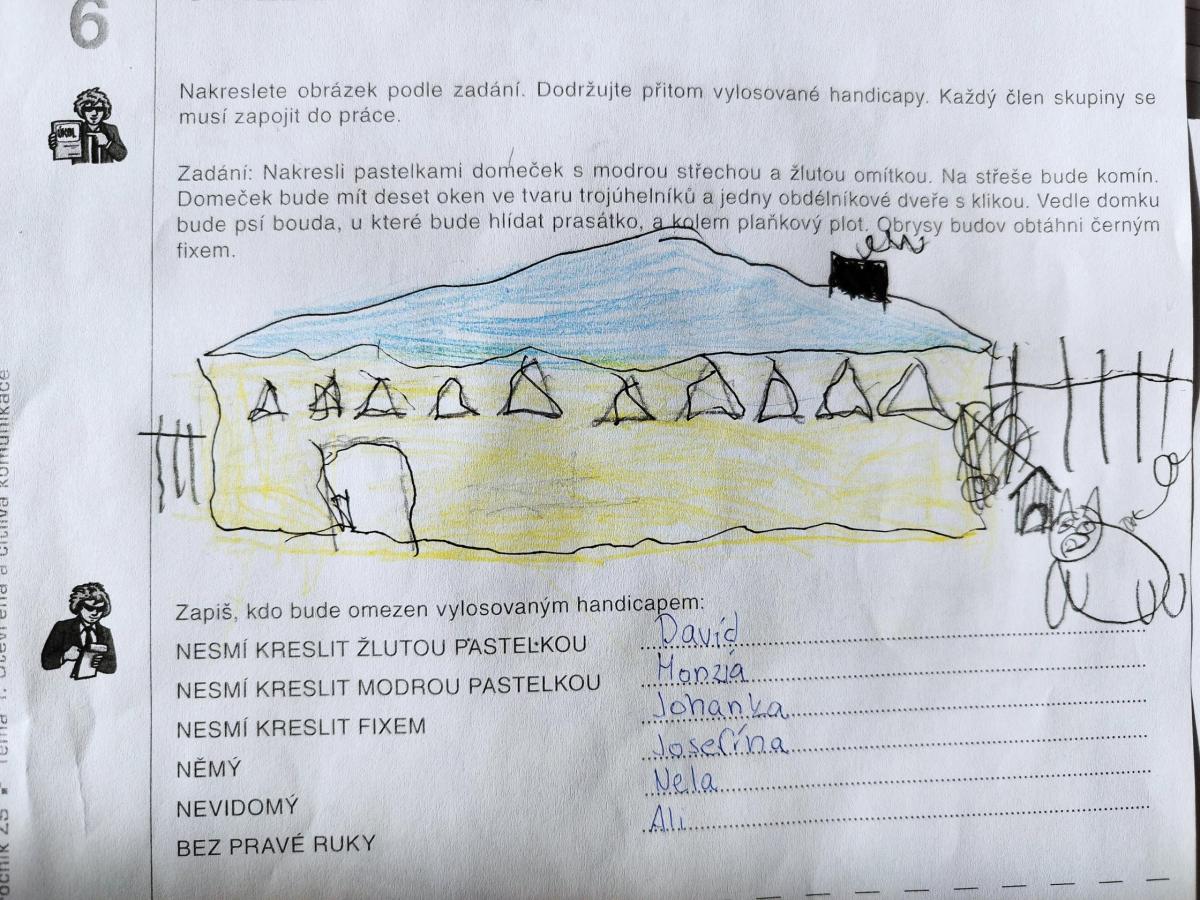 6
Nakreslete obrázek podle zadání. Dodržujte přitom vylosované handicapy. Každý člen skupiny se
musí zapojit do práce.
ÚKOL
Zadání: Nakresli pastelkami domeček s modrou střechou a žlutou omítkou. Na střeše bude komín.
Domeček bude mít deset oken ve tvaru trojúhelníků a jedny obdélníkové dveře s klikou. Vedle domku
bude psí bouda, u které bude hlídat prasátko, a kolem plaňkový plot. Obrysy budov obtáhni černým
fixem.
Zapiš, kdo bude omezen vylosovaným handicapem:
NESMÍ KRESLIT ŽLUTOU PASTELKOU David
NESMÍ KRESLIT MODROU PASTELKOU Monzia
NESMÍ KRESLIT FIXEM Johanka
NĚMÝ Josefína
NEVIDOMÝ Nela
BEZ PRAVÉ RUKY Ali